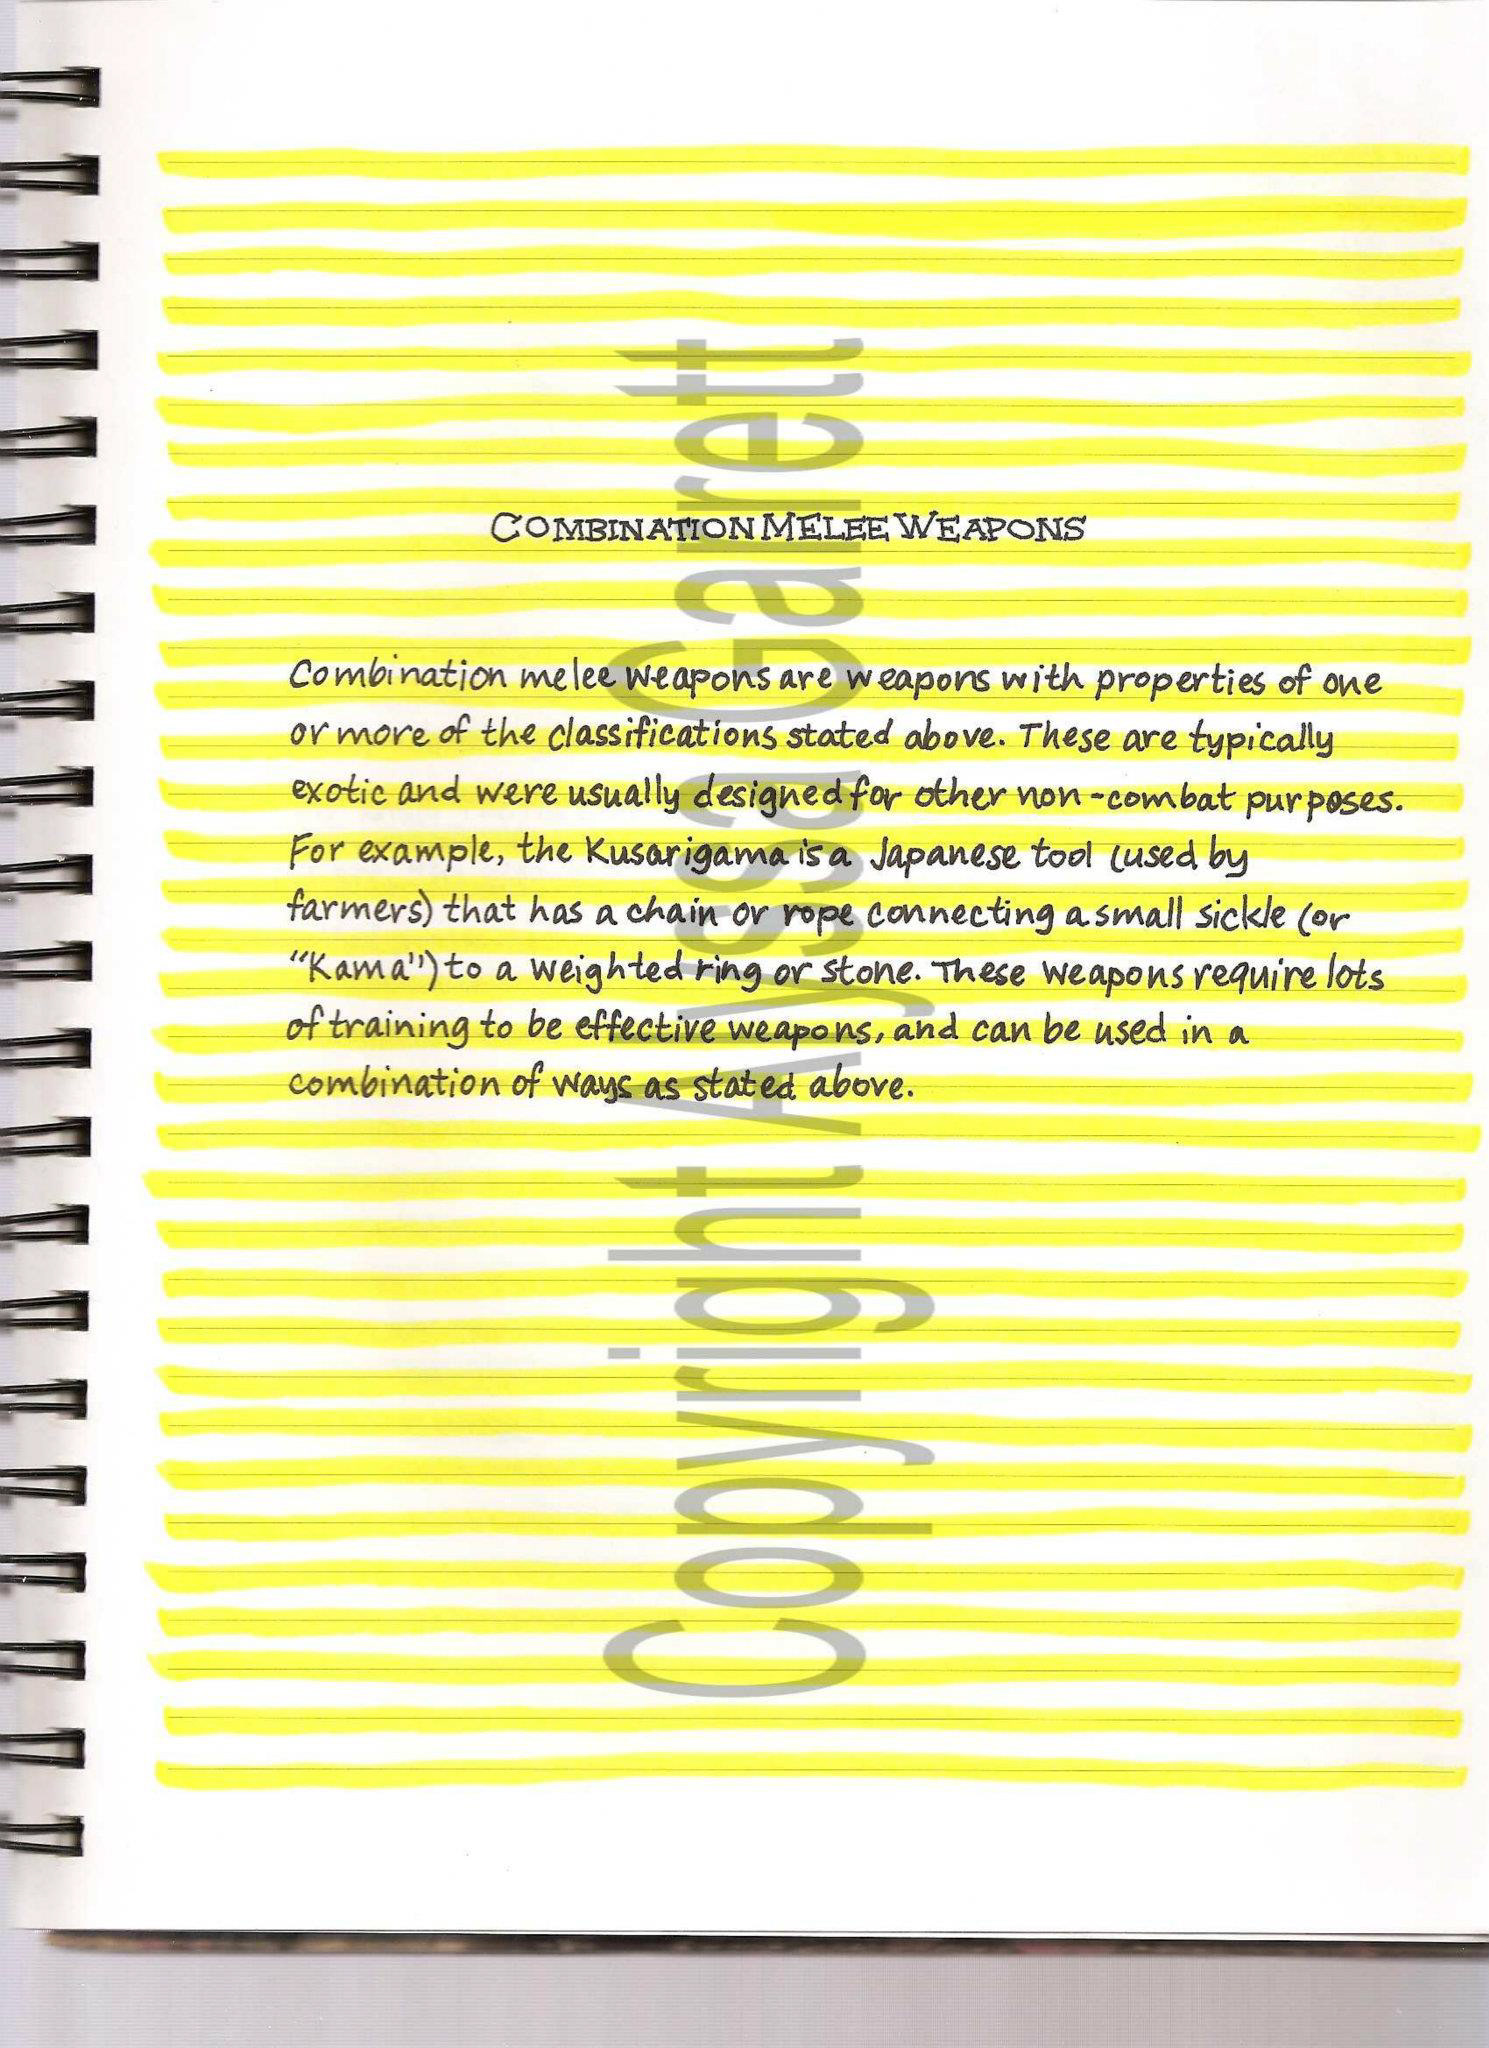 COMBINATION MELEE WEAPONS
Combination melee weapons are weapons with properties of one
or more of the classifications stated above. These are typically
exotic and were usually designed for other non-combat purposes.
For example, the Kusarigama is a Japanese tool (used by
farmers) that has a chain or rope connecting a small sickle (or
"Kama") to a weighted ring or stone. These weapons require lots
of training to be effective weapons, and can be used in a
combination of ways as stated above.
Copyright Alyssa Garrett